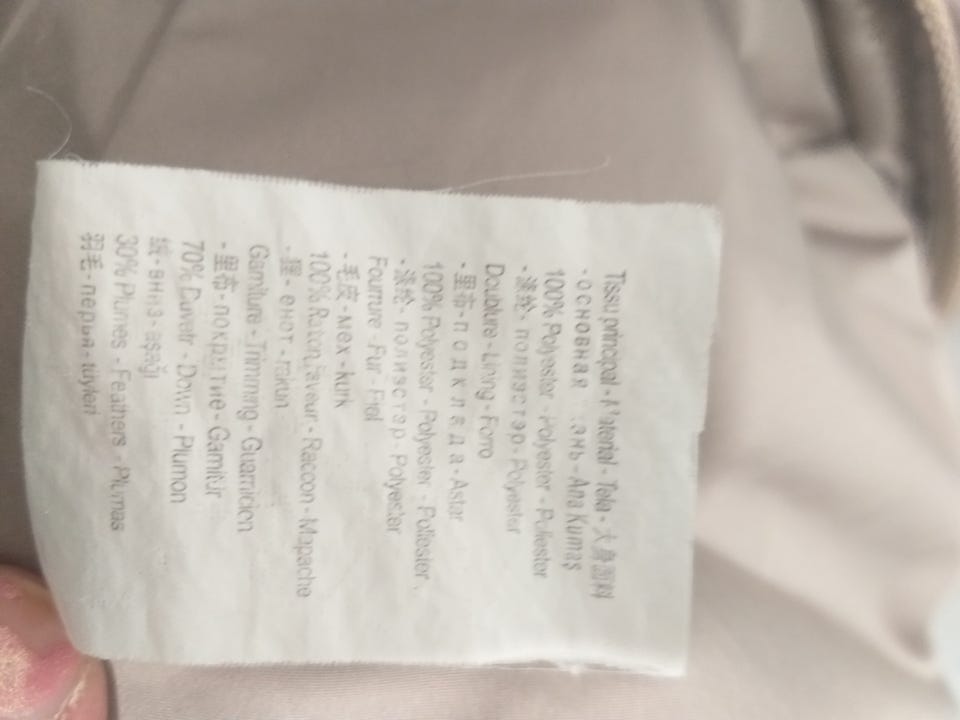 Tissu principal - Material - Tela - 大身面料
- основная ань - Ana Kumaş
100% Polyester - Polyester - Poliester
- 涤纶 - полиэстэр - Polyester
Doublure - Lining - Forro
- 里布 - подклада - Astar
100% Polyester - Polyester - Poliester
- 涤纶 - полиэстэр - Polyester
Fourrure - Fur - Piel
- 毛皮 - мех - kürk
100% Raton laveur - Raccon - Mapache
- 狸 - енот - rakun
Garniture - Trimming - Guarnicion
- 里布 - покрытие - Garnitür
70% Duvet - Down - Plumon
绒 - вниз - aşağı
30% Plumes - Feathers - Plumas
羽毛 - перья - tüyleri